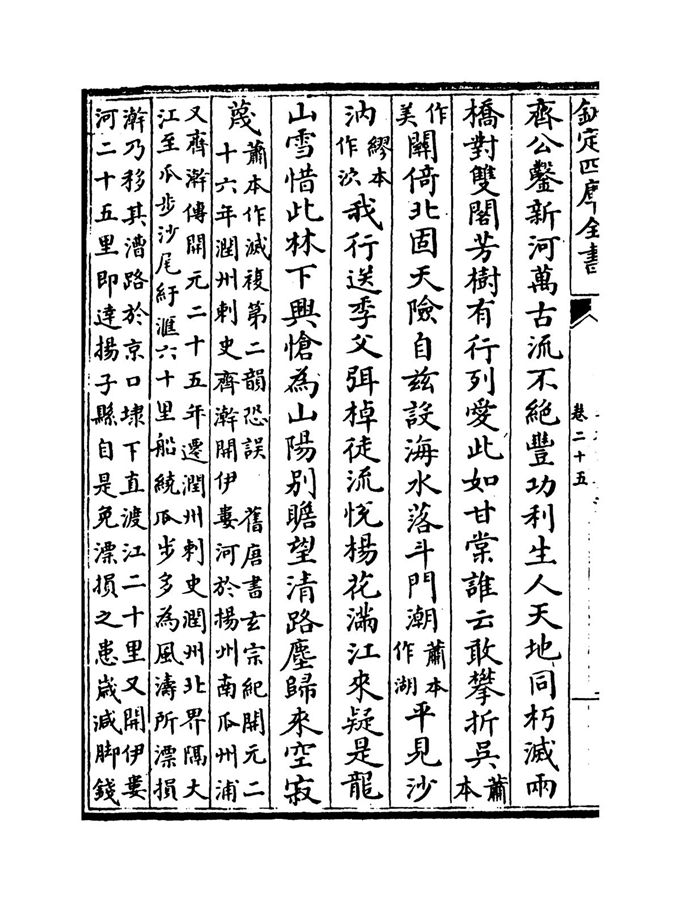 欽定四庫全書
卷二十五
齊公鑿新河萬古流不絶豐功利生人天地同朽滅兩
橋對雙閣芳樹有行列愛此如甘棠誰云敢攀折吳蕭本
作美關倚北固天險自兹設海水落斗門潮蕭本作湖平見沙
汭繆本作㳄我行送季父弭棹徒流悦楊花滿江來疑是龍
山雪惜此林下興愴為山陽别瞻望清路塵歸來空寂
蔑蕭本作滅複第二韻恐誤　舊唐書玄宗紀開元二
十六年潤州刺史齊澣開伊婁河於揚州南瓜州浦
又齊澣傳開元二十五年遷潤州刺史潤州北界隔大
江至瓜步沙尾紆滙六十里船繞瓜步多為風濤所漂損
澣乃移其漕路於京口埭下直渡江二十里又開伊婁
河二十五里即達揚子縣自是免漂損之患嵗減脚錢